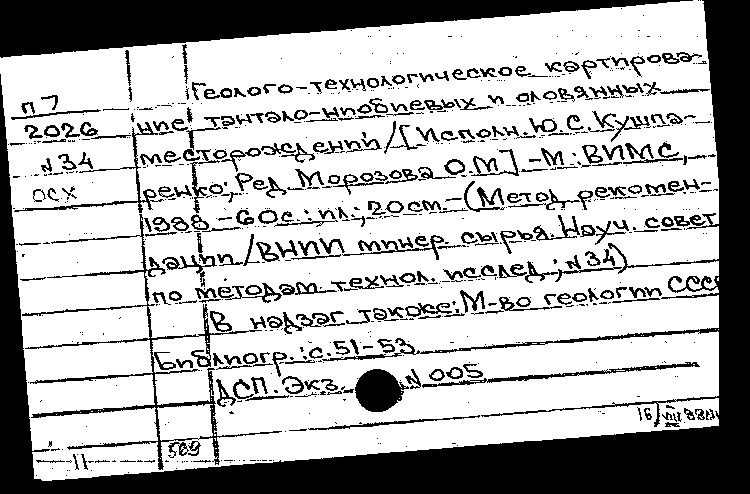 Геолого-технологическое картирова-
п7
2026 ние тантало-ниобиевых и оловянных
N34 месторождений/[Исполн. Ю.С. Кушпа-
осх ренко; Ред. Морозова О.М].-М: ВИМС,
1988.-60с.: ил.; 20см-(Метод. рекомен-
дации/ВНИИ минер. сырья. Науч. совет
по методам технол. исслед.; N34)
В надзаг. также: М-во геологии СССР
Библиогр.: с.51-53
ДСП. Экз. N 005
16/VIII 88
11 589